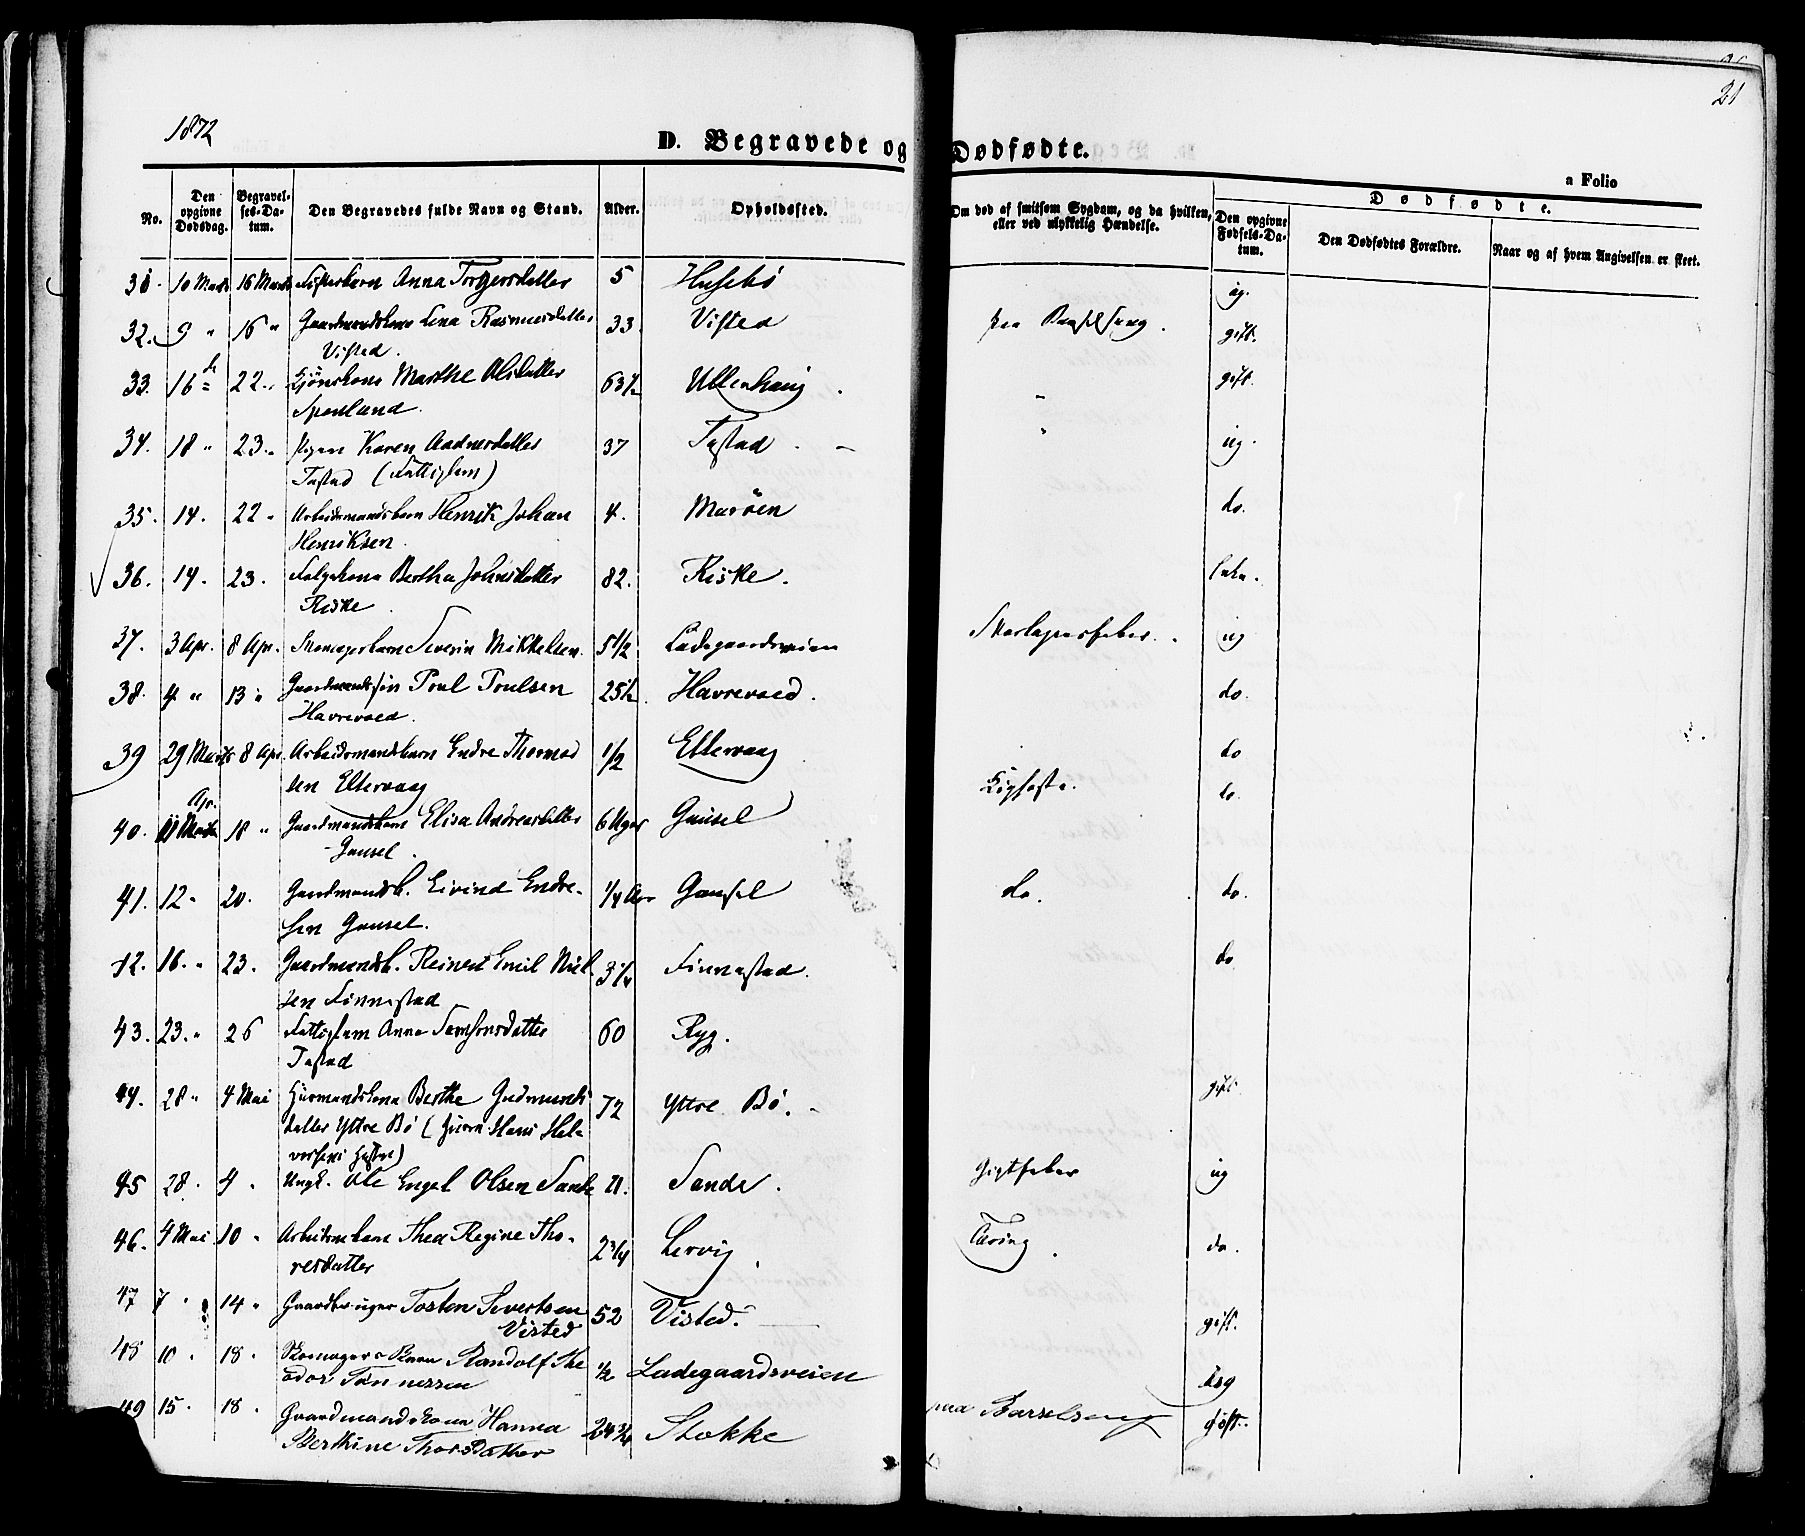 21
1872
D. Begravede og Dødfødte.
a Folio
No.
Den opgivne Dødsdag.
Begravelses-Datum.
Den Begravedes fulde Navn og Stand.
Alder.
Opholdssted.
Om død af smitsom Sygdom, og da hvilken, eller ved ulykkelig Hændelse.
Den opgivne Fødsels-Datum.
Dødfødte.
Den Dødfødtes Forældre.
Naar og af hvem Angivelsen er skeet.
31. 10 Marts 16 Marts Anna Torgersdatter 5 Husebø ug.
32. 9 " 16 " Gaardmandskone Lena Rasmusdatter 33. Visted paa Barselseng. gift.
Visted.
33. 16 " 22 " Marthe Olsdatter 63½ Ullenhaug " gift.
34. 18 " 23 " Pigen Karen Aadnesdatter 37 Tastad " ug.
Tastad (Fattiglem)
35. 14. 22 " Arbeidsmandsbarn Henrik Johan 4. Marøen do.
Henriksen.
36. 14. 23. Bertha Johnsdatter 82. Riske. Enke.
Riske
37. 3 Apr. 8 Apr. Skomagerbarn Severin Mikkelsen 5½ Ladegaardsveien Skarlagensfeber. ug
38. 4 " 13 " Gaardmandssøn Poul Poulsen 25½ Havrevoed. do.
Havrevoed.
39 29 Marts 8 Apr. Arbeidsmandsbarn Endre Thomas ½ Ettervaag do
sen Ettervaag
40. 11 Apr. 18 " Elisa Andreasdatter 6 Uger Gausel Kighoste. do.
Gausel.
41. 12 " 20. Gaardmandsb. Eivind Endre- ¼ Aar Gausel do. do.
sen Gausel.
42. 16. " 23. Gaardmandsb. Reinert Emil Niel 3¼ Finnestad. do
sen Finnestad
43. 23. " 26 Fattiglem Anna Samsonsdatter 60 Ryg.
Tastad
44. 28 " 4 Mai Huusmandskone Berthe Gudmunds 72 Yttre Bø. gift.
datter Yttre Bø
45 28. 4 " Ungk. Ole Engel Olsen Sande 21. Sande. Gigtfeber ug
46. 4 Mai 10 " Thea Regine Tho- 2¾ Lervig Tæring. do.
resdatter
47 7 " 14 " Gaardbruger Tosten Severtsen 52 Visted. gift.
Visted
48 10 " 18 " Skomagers Barn Randolf The ½ Ladegaardsveien ug
odor Tønnessen
49 15. 18. Gaardmandskone Hanna 24¾ Stokke paa Barselseng gift.
Berthine Thorsdatter